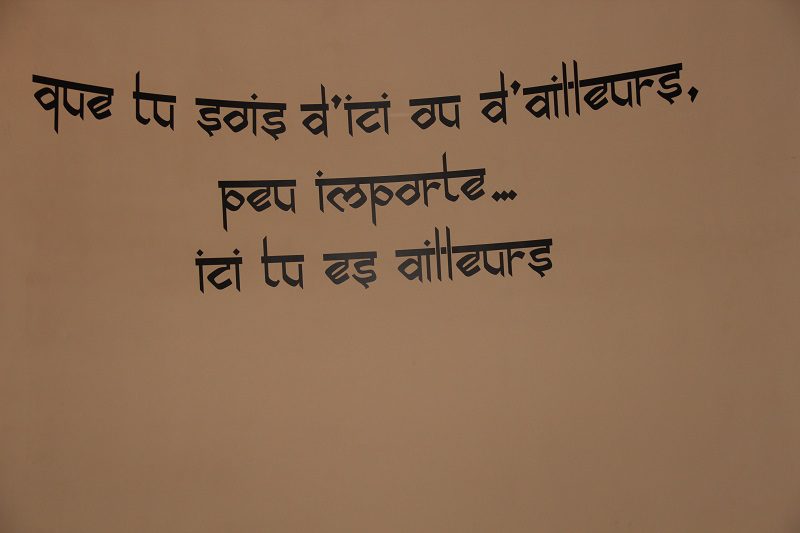 que tu sois d'ici ou d'ailleurs,
peu importe...
ici tu es ailleurs